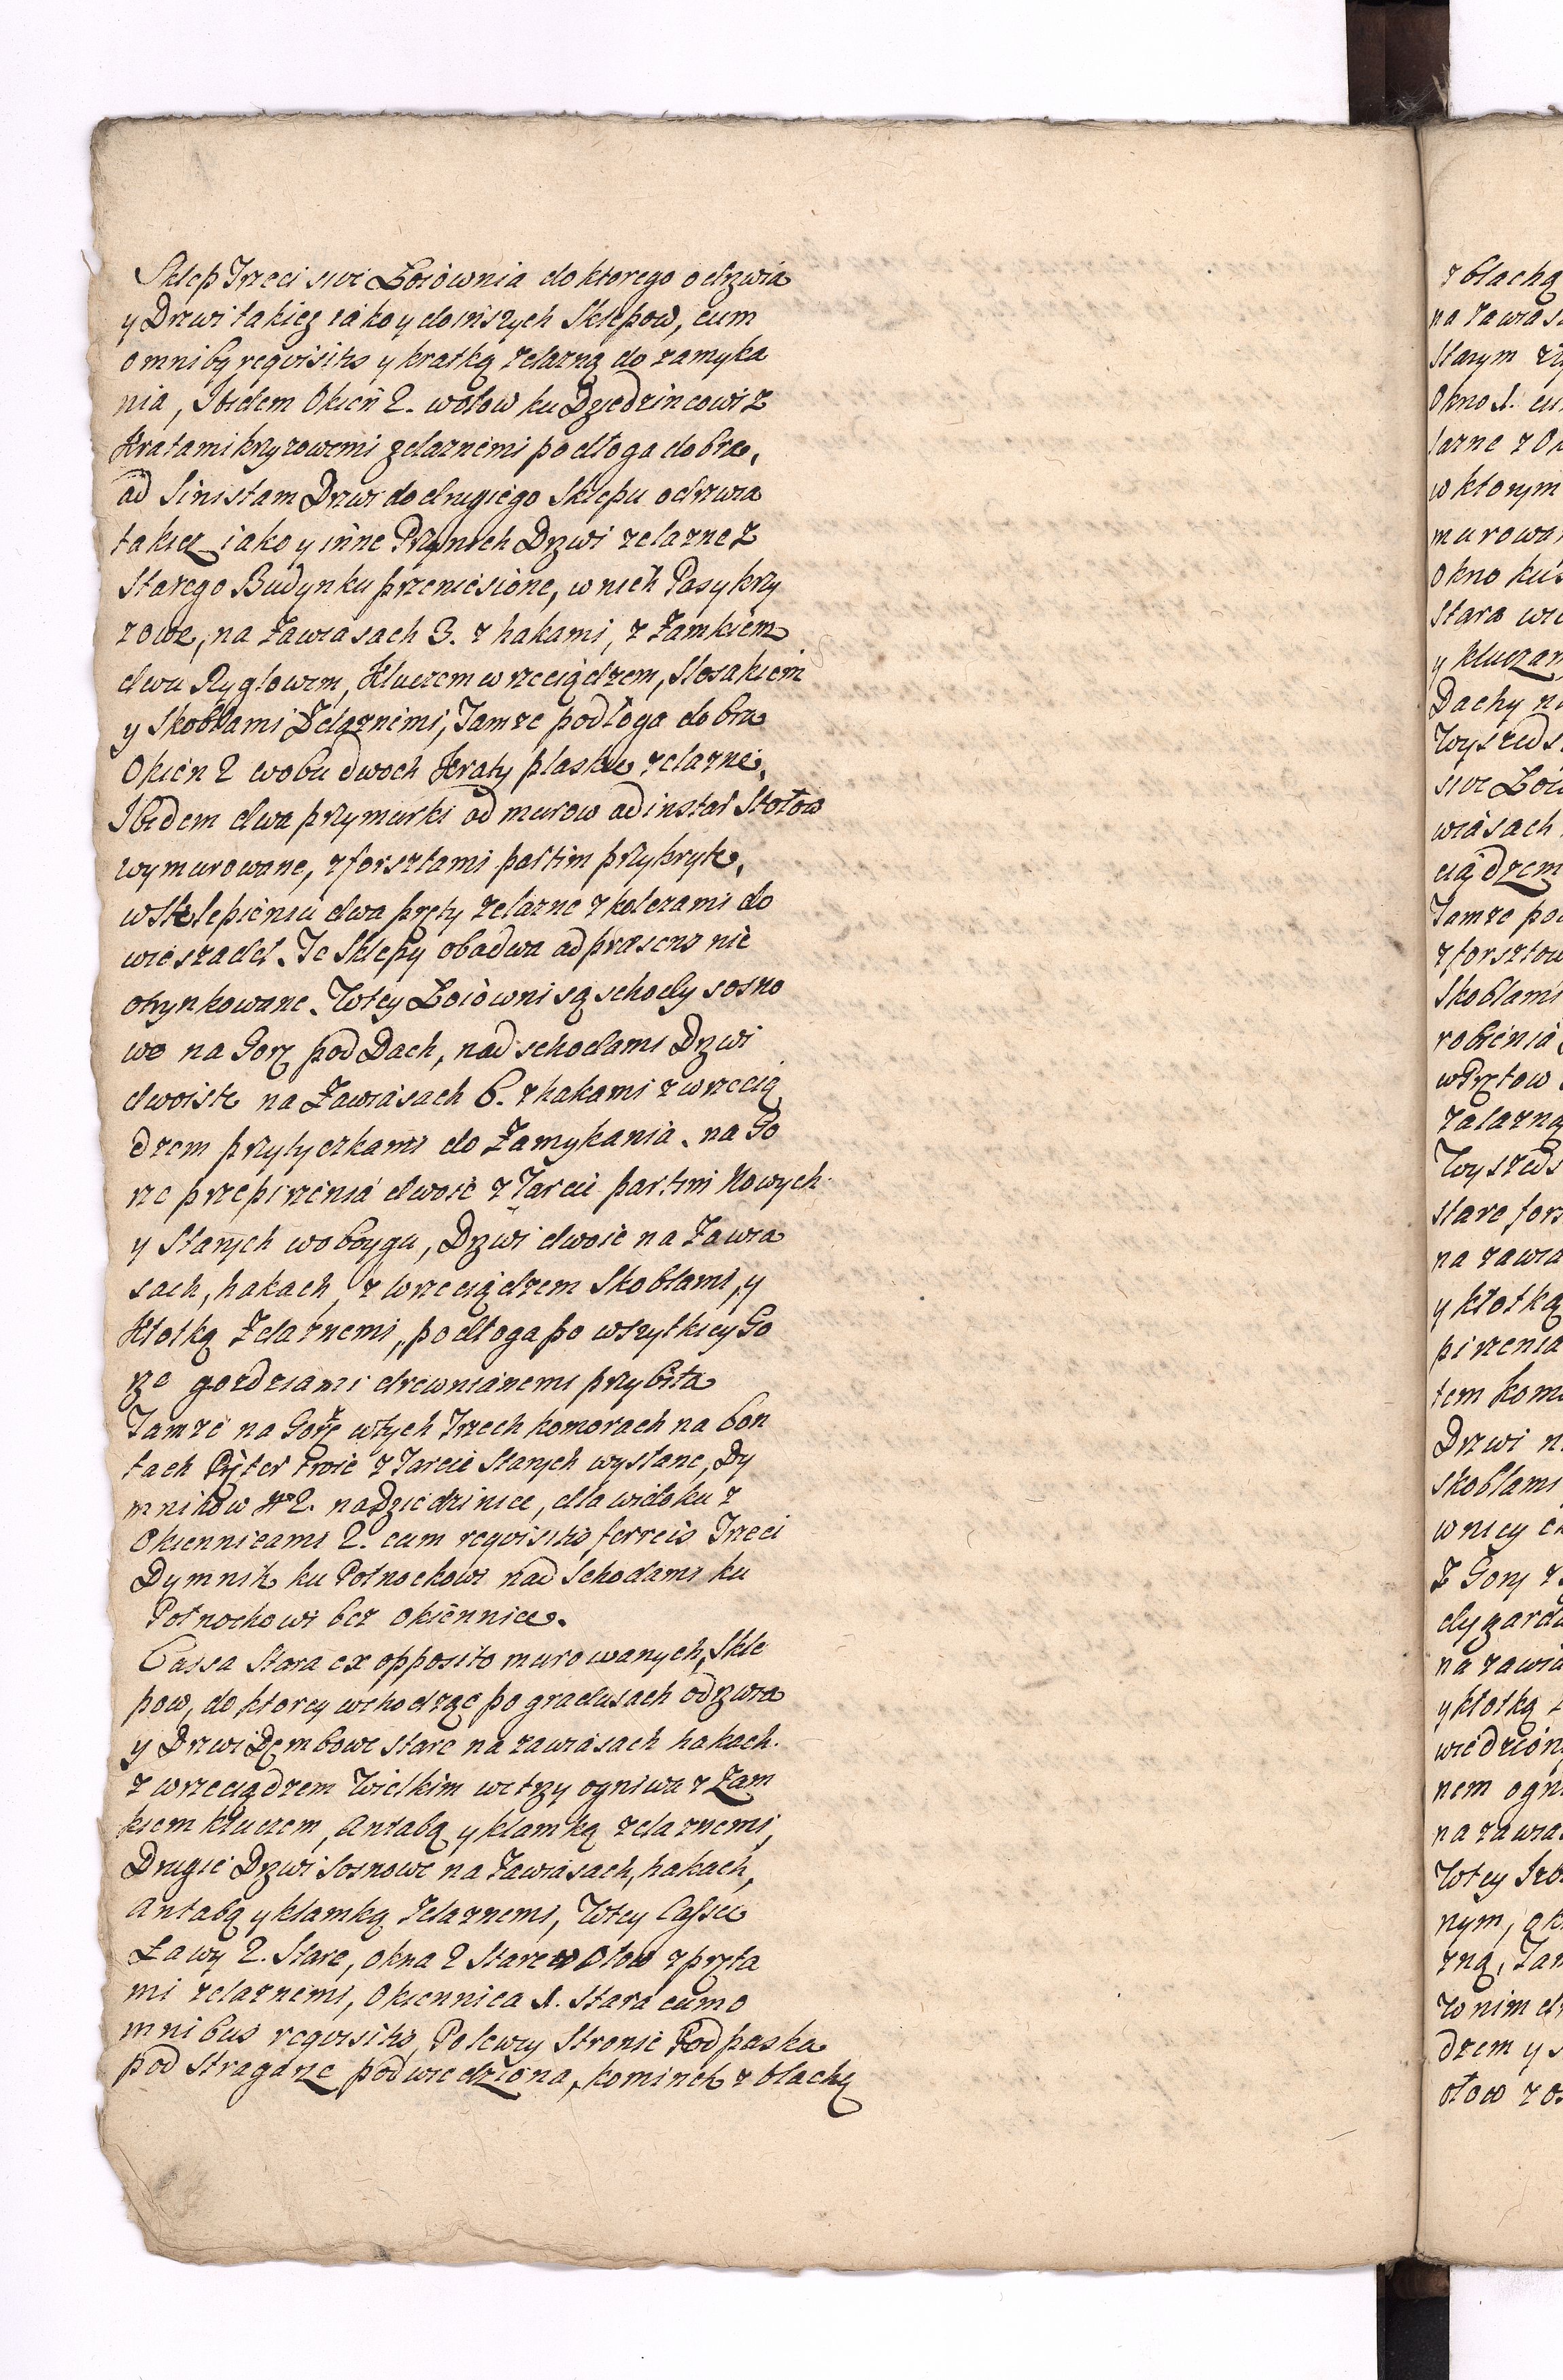 Sklep Trzeci sive Łoiownia do ktorego odrzwia
y Drzwi takiez iako y do inszych Sklepow, cum
omnibq reqvisitis y kratką zelazną do zamyka
nia, Ibidem Okień 2. wołow ku Dziedzincowi z
Kratami krzyzowemi zelaznemi podłoga dobra,
ad Sinistam Drzwi do drugiego Sklepu odrzwia
takiez iako y inne Przynich Drzwi zelazne z
Starego Budynku przeniesione, w nich Pasy krzy
zowe, na Zawiasach 3. z hakami, z Zamkiem
dwu Ryglowem, Kluczem wrzeciądzem, Stosakiem
y Skoblami Zelaznemi, Tamze podłoga dobra
Okien 2 wobu dwoch Kraty plaskie zelazne,
Ibidem dwa przymurki ad murow ad instar Stołow
wymurowane, z forsztami partim przykryte,
w Sklepieniu dwa pręty zelazne z kolczami do
wieszadeł. Te Sklepy obadwa ad præsens nie
otrynkowane. Wtey Łoiowni są schody sosno
we na Gorę pod Dach, nad schodami Drzwi
dwoiste na Zawiasach 6. z hakami z wrzecią
dzem przytyczkami do Zamykania. na Go
rze przepirzenia dwoie z Tarcic partim Nowych
y Starych wobrygu, Drzwi dwoie na Zawia
sach, hakach, z wrzeciądzem Skoblami, y
Kłotką Zelaznemi, podłoga po wszytkiey Go
rze gozdziami drewnianemi przybita
Tamze na Gorze wtych Trzech komorach na bon
tach Pijter troie z Tarcic Starych wysłane, Dy
mnikow No 2. na Dziedzinice, dla widoku z
Okiennicami 2. cum reqvisitis ferreis Trzeci
Dymnik ku Połnockowi nad Schodami ku
Połnockowi bez okiennice.
Cassa Stara ex opposito murowanych Skle
pow, do ktorey wchodząc po gradusach odrzwia
y Drzwi Dembowe stare na zawiasach hakach.
z wrzeciądzem Wielkim wetrzy ogniwa z Zam
kiem kluczem, Antabą y klamką zelaznemi,
Drugie Drzwi Sosnowe na Zawiasach, hakach,
Antabą y klamką Zelaznemi, Wtey Cassie
Ławy 2. Stare, okna 2 Stare w ołow z pręta
mi zelaznemi, Okiennica 1. Stara cum o
mnibus reqvisitis, Po lewey Stronie Podpaska
pod Stragarze podwiedziona, kominek z blachą
z blachą
na zawias
Starym
Okno 1. cu
lazne z
w ktorym
murowa
Okno ku
Stara
y kluczam
Dachy
Wyszeds
sive Łoi
wiasach
ciądzem
Tamze po
z forsztow
Skoblami
robienia
zalazną
Wyszeds
stare fors
na zawia
y kłotką
pirzenia
tem komi
Drzwi
Skoblami
w niey
Z Gory
na zawia
y kłotką
wiedzion
nem ogni
na zawias
Wtey Izb
nym,
zną, Tam
W nim
dzem y
ołow z